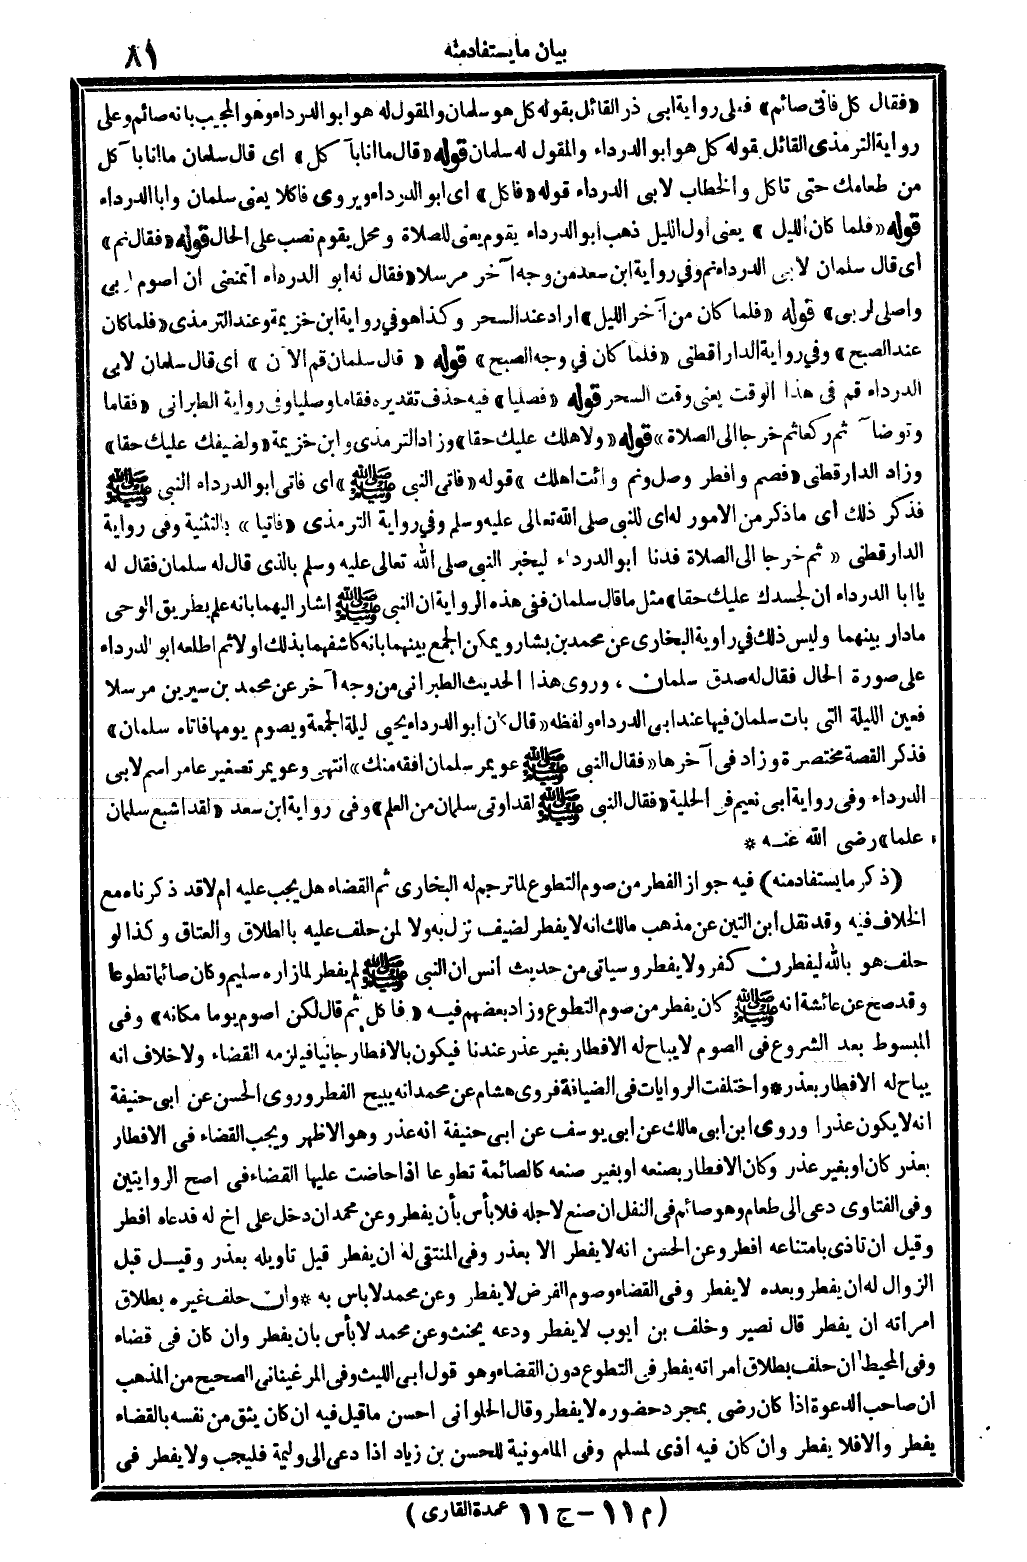 بيان ما يستفاد منه ٨١
«فقال كل فانى صائم» فعلى رواية ابى ذر القائل بقوله كل هو سلمان والمقول له هو ابو الدرداء وهو المجيب بانه صائم وعلى
رواية الترمذى القائل بقوله كل هو ابو الدرداء والمقول له سلمان قوله «قال ما انا بآ كل» اى قال سلمان ما انا بآ كل
من طعامك حتى تاكل والخطاب لابى الدرداء قوله «فاكل» اى ابو الدرداء ويروى فاكلا يعنى سلمان وابا الدرداء
قوله «فلما كان الليل» يعنى أول الليل ذهب ابو الدرداء يقوم يعنى للصلاة ومحل يقوم نصب على الحال قوله «فقال نم»
أى قال سلمان لابى الدرداء نم وفي رواية ابن سعد من وجه آخر مرسلا «فقال له ابو الدرداء اتمنعنى ان اصوم لربى
واصلى لربى» قوله «فلما كان من آخر الليل» اراد عند السحر وكذا هو في رواية ابن خزيمة وعند الترمذى «فلما كان
عند الصبح» وفي رواية الدارقطنى «فلما كان في وجه الصبح» قوله «قال سلمان قم الآن» اى قال سلمان لابى
الدرداء قم فى هذا الوقت يعنى وقت السحر قوله «فصليا» فيه حذف تقديره فقاما وصليا وفى رواية الطبرانى «فقاما
وتوضآ ثم ركعا ثم خرجا الى الصلاة» قوله «ولاهلك عليك حقا» وزاد الترمذى وابن خزيمة «ولضيفك عليك حقا»
وزاد الدارقطنى «فصم وافطر وصل ونم وائت اهلك» قوله «فاتى النبى ﷺ» اى فاتى ابو الدرداء النبى ﷺ
فذكر ذلك أى ماذكر من الامور له اى للنبى صلى الله تعالى عليه وسلم وفي رواية الترمذى «فاتيا» بالتثنية وفى رواية
الدارقطنى «ثم خرجا الى الصلاة فدنا ابو الدرداء ليخبر النبى صلى الله تعالى عليه وسلم بالذى قال له سلمان فقال له
يا ابا الدرداء ان لجسدك عليك حقا» مثل ما قال سلمان ففى هذه الرواية ان النبى ﷺ اشار اليهما بانه علم بطريق الوحى
مادار بينهما وليس ذلك في راوية البخارى عن محمد بن بشار ويمكن الجمع بينهما بانه كاشفهما بذلك اولا ثم اطلعه ابو الدرداء
على صورة الحال فقال له صدق سلمان ، وروى هذا الحديث الطبرانى من وجه آخر عن محمد بن سيرين مرسلا
فعين الليلة التى بات سلمان فيها عند ابى الدرداء ولفظه «قال كان ابو الدرداء يحيى ليلة الجمعة ويصوم يومها فاتاه سلمان»
فذكر القصة مختصرة وزاد فى آخرها «فقال النبى ﷺ عويمر سلمان افقه منك» انتهى وعويمر تصغير عامر اسم لابى
الدرداء وفى رواية ابى نعيم فى الحلية «فقال النبى ﷺ لقد اوتى سلمان من العلم» وفى رواية ابن سعد «لقد اشبع سلمان
علما» رضى الله عنه *
(ذكر ما يستفاد منه) فيه جواز الفطر من صوم التطوع لما ترجم له البخارى ثم القضاء هل يجب عليه ام لا قد ذكرناه مع
الخلاف فيه وقد نقل ابن التين عن مذهب مالك انه لا يفطر لضيف نزل به ولا لمن حلف عليه بالطلاق والعتاق وكذا لو
حلف هو بالله ليفطرن كفر ولا يفطر وسياتى من حديث انس ان النبى ﷺ لم يفطر لما زاره سليم وكان صائما تطوعا
وقد صح عن عائشة انه ﷺ كان يفطر من صوم التطوع وزاد بعضهم فيه «فاكل ثم قال لكن اصوم يوما مكانه» وفى
المبسوط بعد الشروع فى الصوم لا يباح له الافطار بغير عذر عندنا فيكون بالافطار جانيا فيلزمه القضاء ولا خلاف انه
يباح له الافطار بعذر * واختلفت الروايات فى الضيافة فروى هشام عن محمد انه يبيح الفطر وروى الحسن عن ابى حنيفة
انه لا يكون عذرا وروى ابن ابى مالك عن ابى يوسف عن ابى حنيفة انه عذر وهو الاظهر ويجب القضاء فى الافطار
بعذر كان او بغير عذر وكان الافطار بصنعه او بغير صنعه كالصائمة تطوعا اذا حاضت عليها القضاء فى اصح الروايتين
وفى الفتاوى دعى الى طعام وهو صائم فى النفل ان صنع لاجله فلا بأس بأن يفطر وعن محمد ان دخل على اخ له فدعاه افطر
وقيل ان تاذى بامتناعه افطر وعن الحسن انه لا يفطر الا بعذر وفى المنتقى له ان يفطر قيل تاويله بعذر وقيل قبل
الزوال له ان يفطر وبعده لا يفطر وفى القضاء وصوم الفرض لا يفطر وعن محمد لا باس به * وان حلف غيره بطلاق
امراته ان يفطر قال نصير وخلف بن ايوب لا يفطر ودعه يحنث وعن محمد لا بأس بان يفطر وان كان فى قضاء
وفى المحيط ان حلف بطلاق امراته يفطر فى التطوع دون القضاء وهو قول ابى الليث وفى المرغينانى الصحيح من المذهب
ان صاحب الدعوة اذا كان رضى بمجرد حضوره لا يفطر وقال الحلوانى احسن ما قيل فيه ان كان يثق من نفسه بالقضاء
يفطر والا فلا يفطر وان كان فيه اذى لمسلم وفى المامونية للحسن بن زياد اذا دعى الى وليمة فليجب ولا يفطر فى
(م ١١ – ج ١١ عمدة القارى)